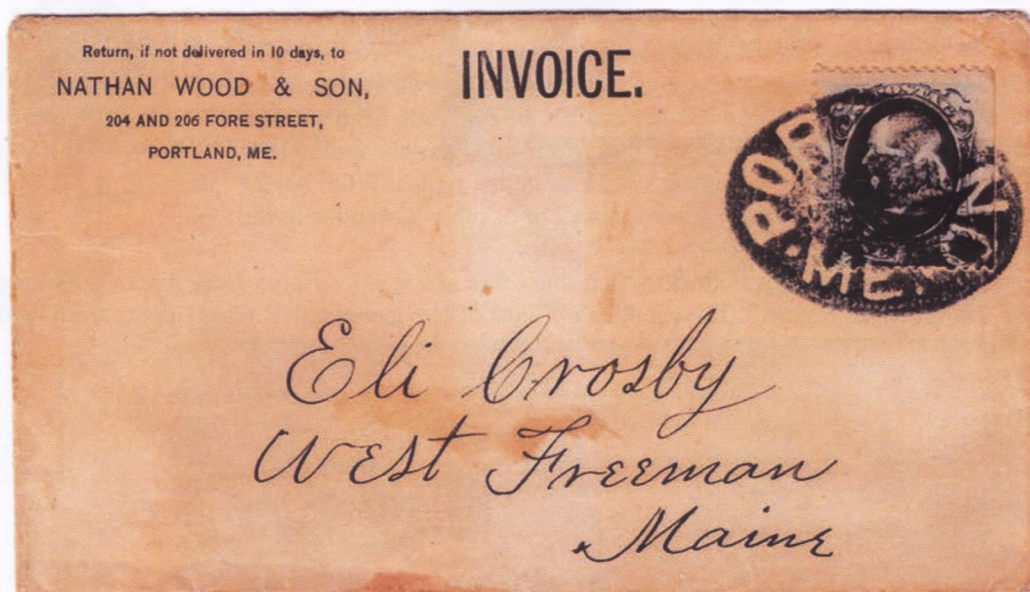 Return, if not delivered in 10 days, to
NATHAN WOOD & SON,
204 AND 206 FORE STREET,
PORTLAND, ME.
INVOICE.
ME.
Eli Crosby
West Freeman
Maine